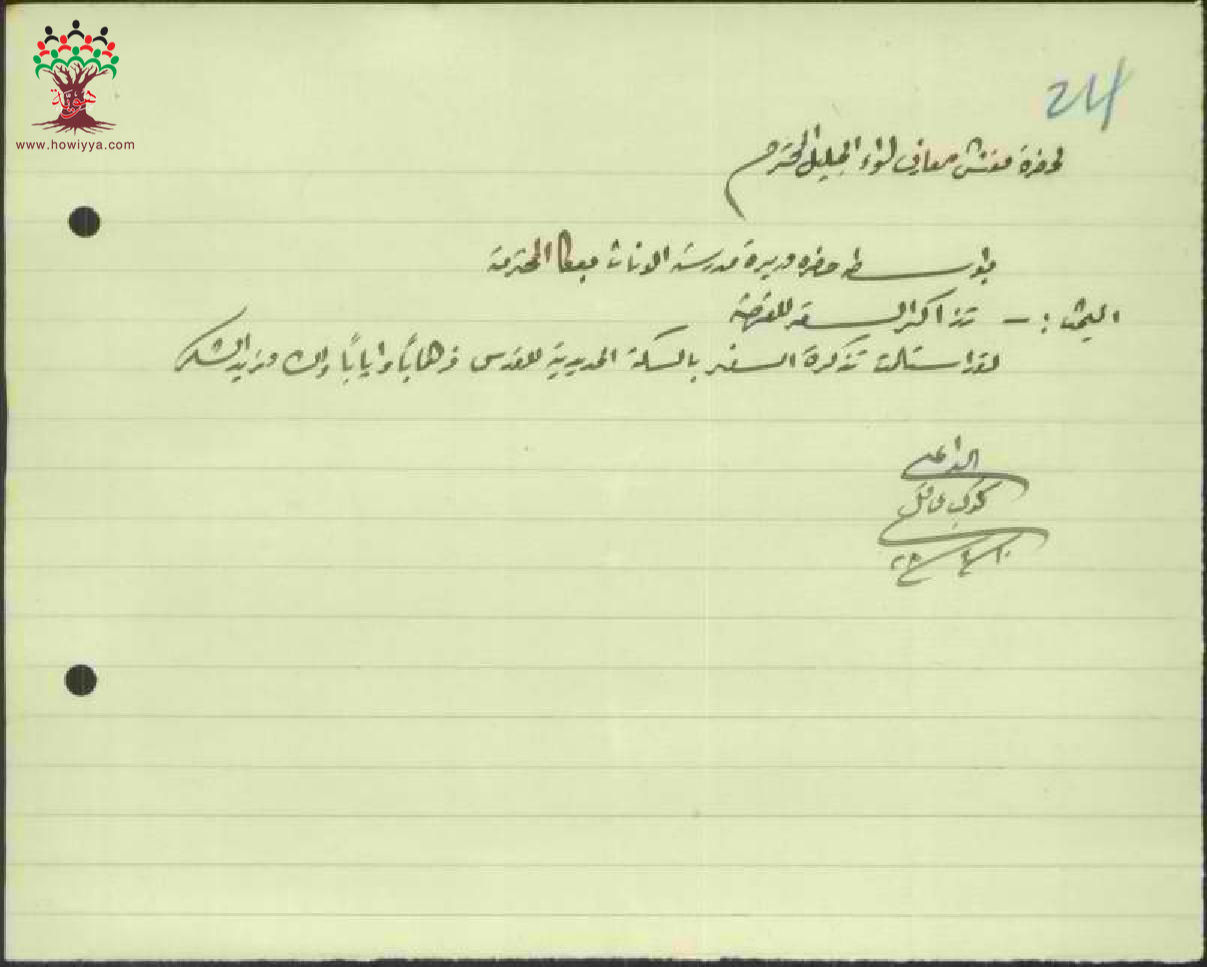 هوية
www.howiyya.com
24
لحضرة مفتش معارف لواء الجليل المحترم
بواسطه حضره مديرة مدرسة الاناث بعكا المحترمة
البحث :- تذاكر السفر للفرصة
لقد استلمت تذكرة السفر بالسكة الحديدية للقدس ذهاباً واياباً ولك مزيد الشكر
الداعي
كوكب